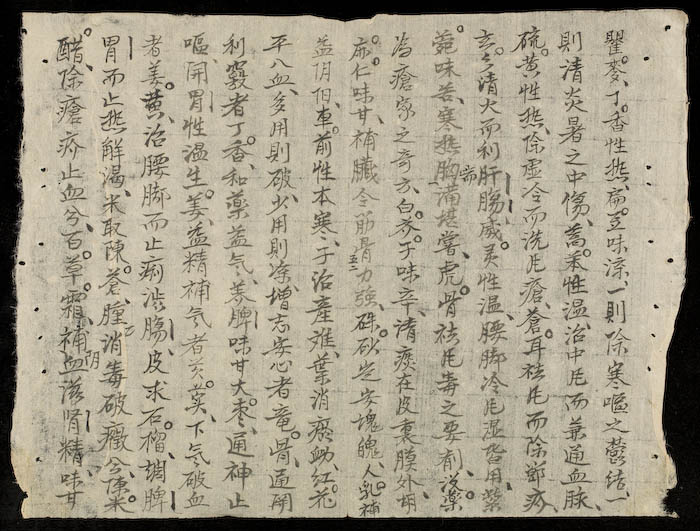 瞿麥、丁香性热、扁豆味凉、一則除寒嘔之鬱结、一
則清炎暑之中傷、藁本性温、治中風而兼通血脉、
硫黄性热、除虚冷而洗風瘡、蒼耳祛風而除 疥、
玄 清火而利肝腸、威灵性温、腰脚冷風湿 用、紫
菀味苦、寒热胸滿喘堪嘗、虎骨祛風毒之要剤、没藥
為瘡家之奇方、白芥子味辛、清痰在皮裏膜外、胡
麻仁味甘、補臟令筋骨力強、硃砂定安塊魄、人乳補
益阴阳、車前性本寒、子治產难、葉消瘀衄、红花
平入血、多用則破、少用則 、增志安心者竜骨、通開
利竅者丁香、和藥益气、养脾味甘大枣、通神止
嘔、開胃性温生姜、益精補气者芡 、下气破血
者姜黄、治腰脚而止痢渋腸、皮求石榴、調脾
胃而止热解渴、米取陳蒼、腫消毒破癥兮、陳米
醋、除瘡疥止血兮、百草霜、補血滋阴肾精、味甘